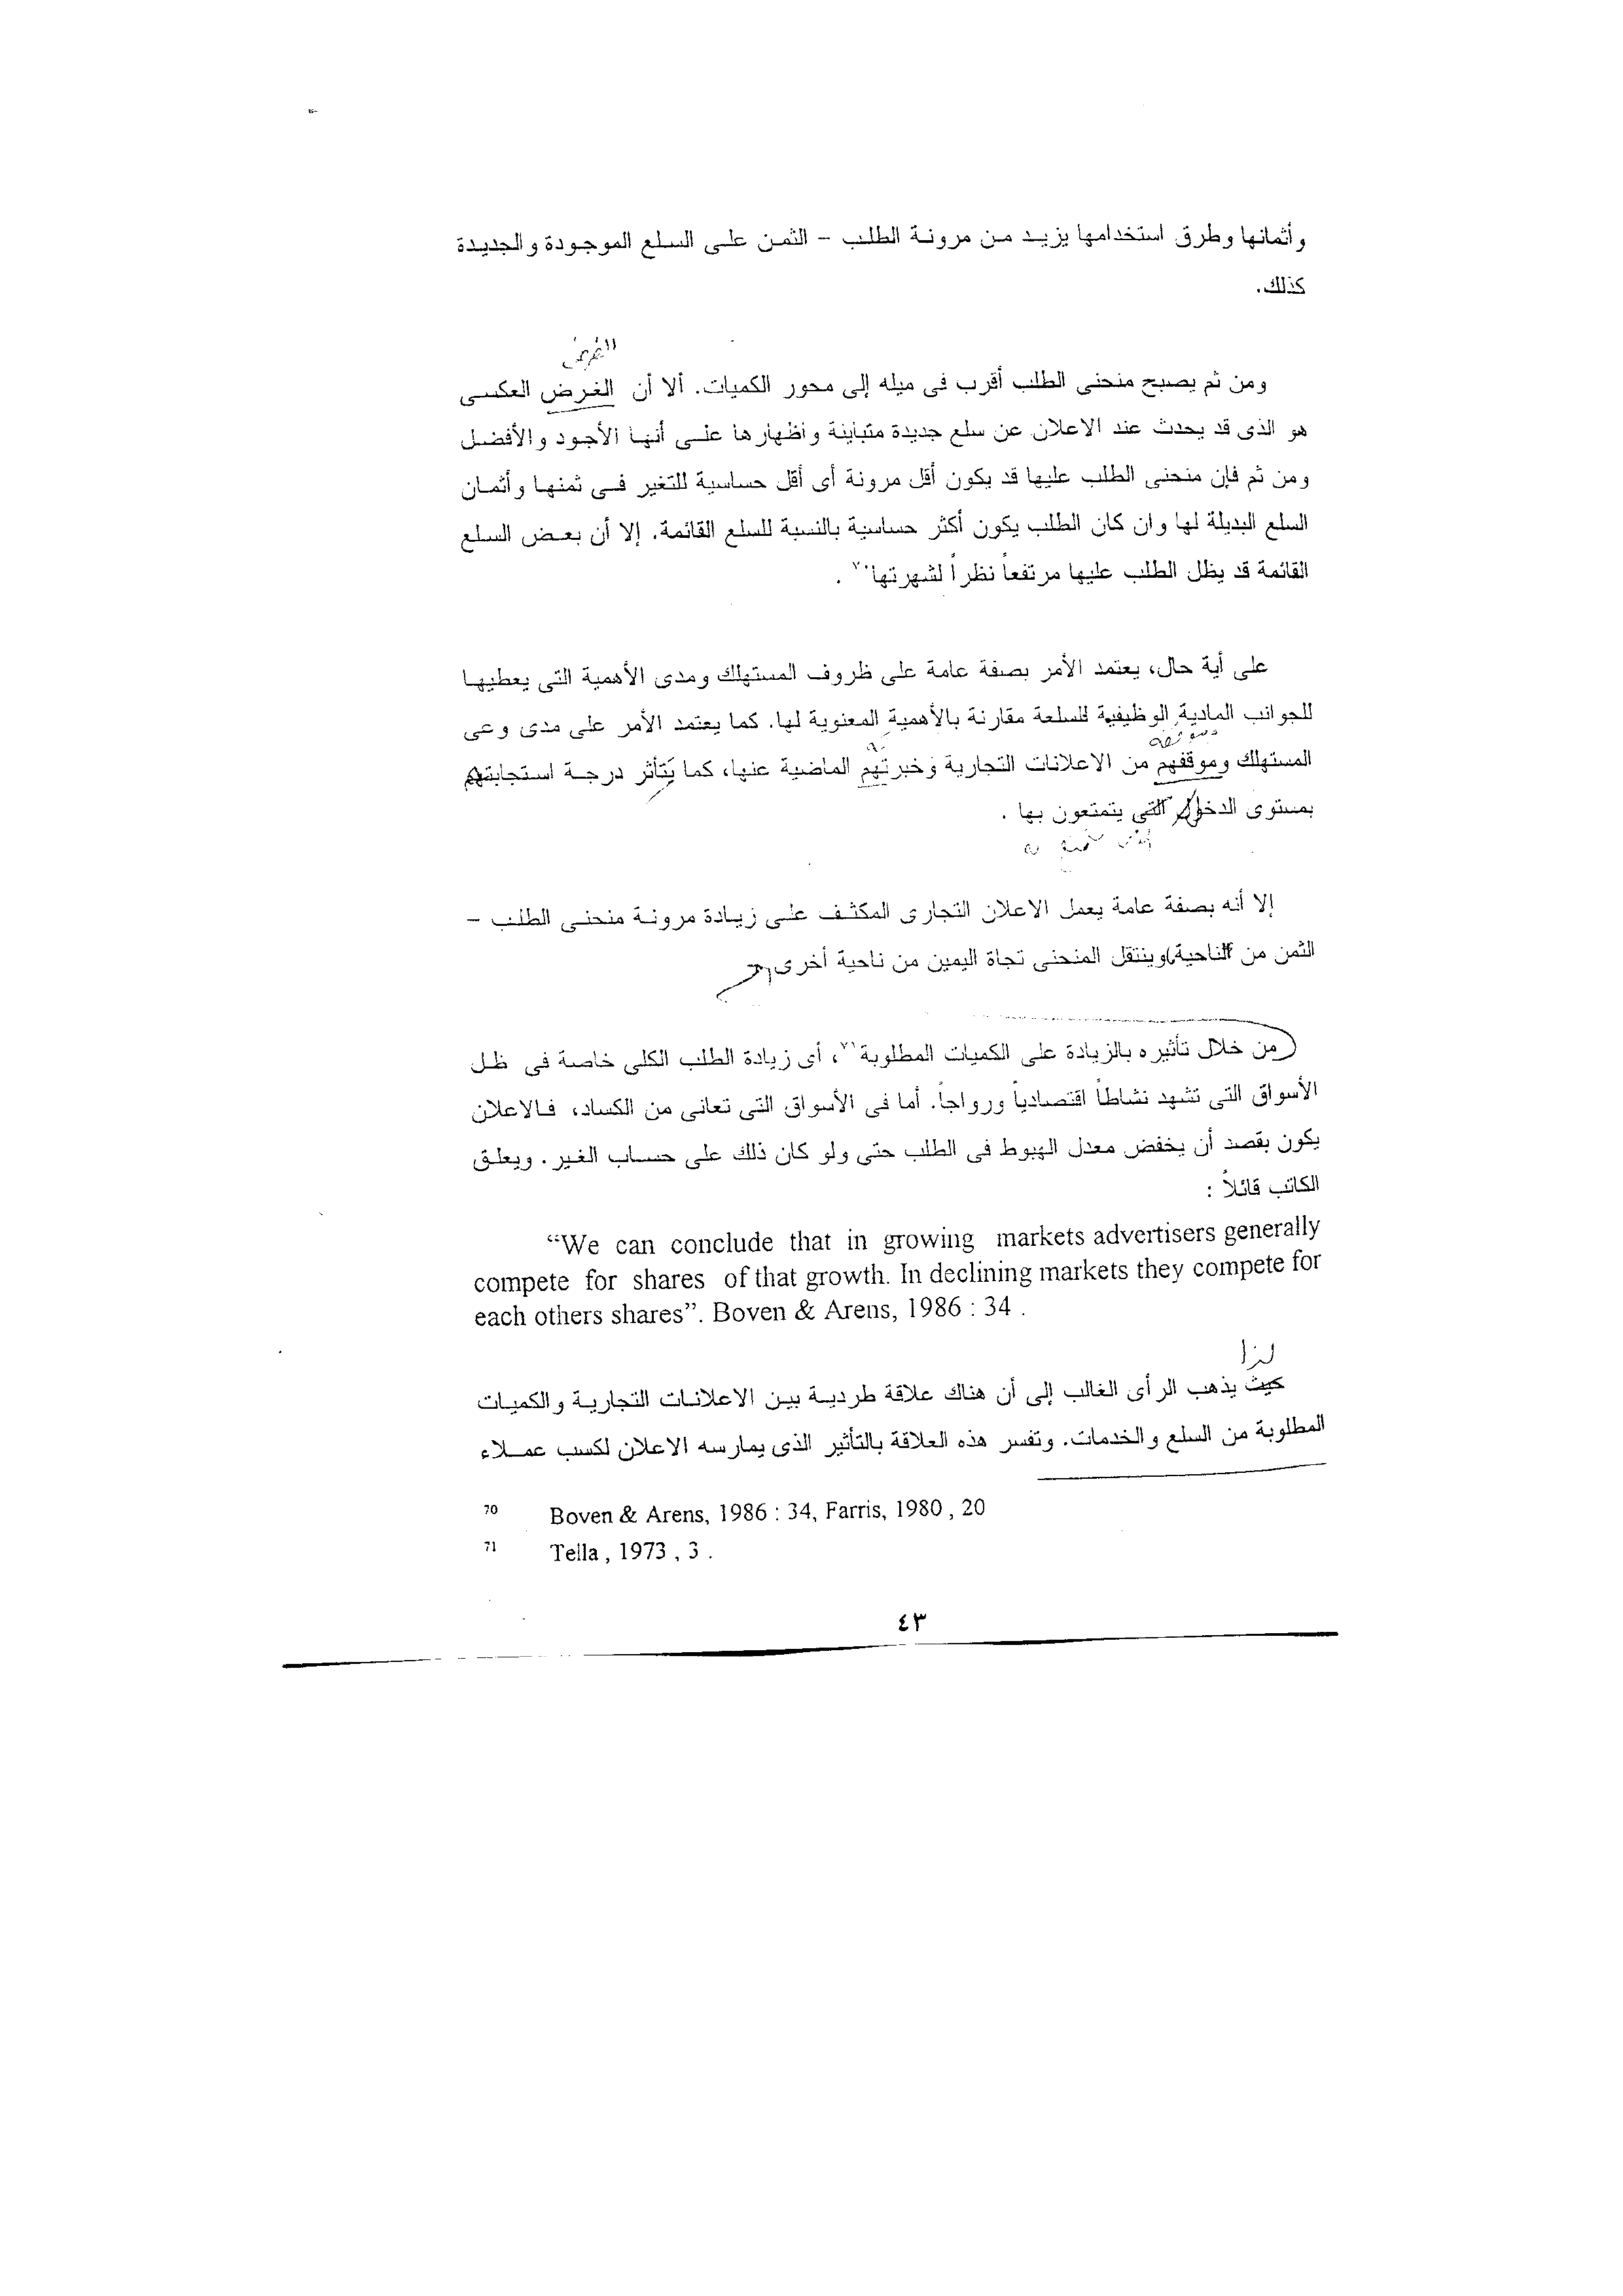 وأثمانها وطرق استخدامها يزيد من مرونة الطلب – الثمن على السلع الموجودة والجديدة
كذلك.
الفرض
ومن ثم يصبح منحنى الطلب أقرب فى ميله إلى محور الكميات. ألا أن الغرض العكسى
هو الذى قد يحدث عند الاعلان عن سلع جديدة متباينة واظهارها على أنها الأجود والأفضل
ومن ثم فإن منحنى الطلب عليها قد يكون أقل مرونة أى أقل حساسية للتغير فى ثمنها وأثمان
السلع البديلة لها وان كان الطلب يكون أكثر حساسية بالنسبة للسلع القائمة. إلا أن بعض السلع
القائمة قد يظل الطلب عليها مرتفعاً نظراً لشهرتها٧٠ .
على أية حال، يعتمد الأمر بصفة عامة على ظروف المستهلك ومدى الأهمية التى يعطيها
للجوانب المادية الوظيفية للسلعة مقارنة بالأهمية المعنوية لها. كما يعتمد الأمر على مدى وعى
وموقفه
المستهلك وموقفهم من الاعلانات التجارية وخبرتهم الماضية عنها، كما يتأثر درجة استجابتهم
بمستوى الدخول التى يتمتعون بها .
إلا أنه بصفة عامة يعمل الاعلان التجارى المكثف على زيادة مرونة منحنى الطلب –
الثمن من الناحية وينتقل المنحنى تجاة اليمين من ناحية أخرى
من خلال تأثيره بالزيادة على الكميات المطلوبة٧١، أى زيادة الطلب الكلى خاصة فى ظل
الأسواق التى تشهد نشاطاً اقتصادياً ورواجاً. أما فى الأسواق التى تعانى من الكساد، فالاعلان
يكون بقصد أن يخفض معدل الهبوط فى الطلب حتى ولو كان ذلك على حساب الغير. ويعلق
الكاتب قائلاً :
“We can conclude that in growing markets advertisers generally
compete for shares of that growth. In declining markets they compete for
each others shares”. Boven & Arens, 1986 : 34 .
لذا
حيث يذهب الرأى الغالب إلى أن هناك علاقة طردية بين الاعلانات التجارية والكميات
المطلوبة من السلع والخدمات. وتفسر هذه العلاقة بالتأثير الذى يمارسه الاعلان لكسب عملاء
70 Boven & Arens, 1986 : 34, Farris, 1980 , 20
71 Tella , 1973 , 3 .
٤٣